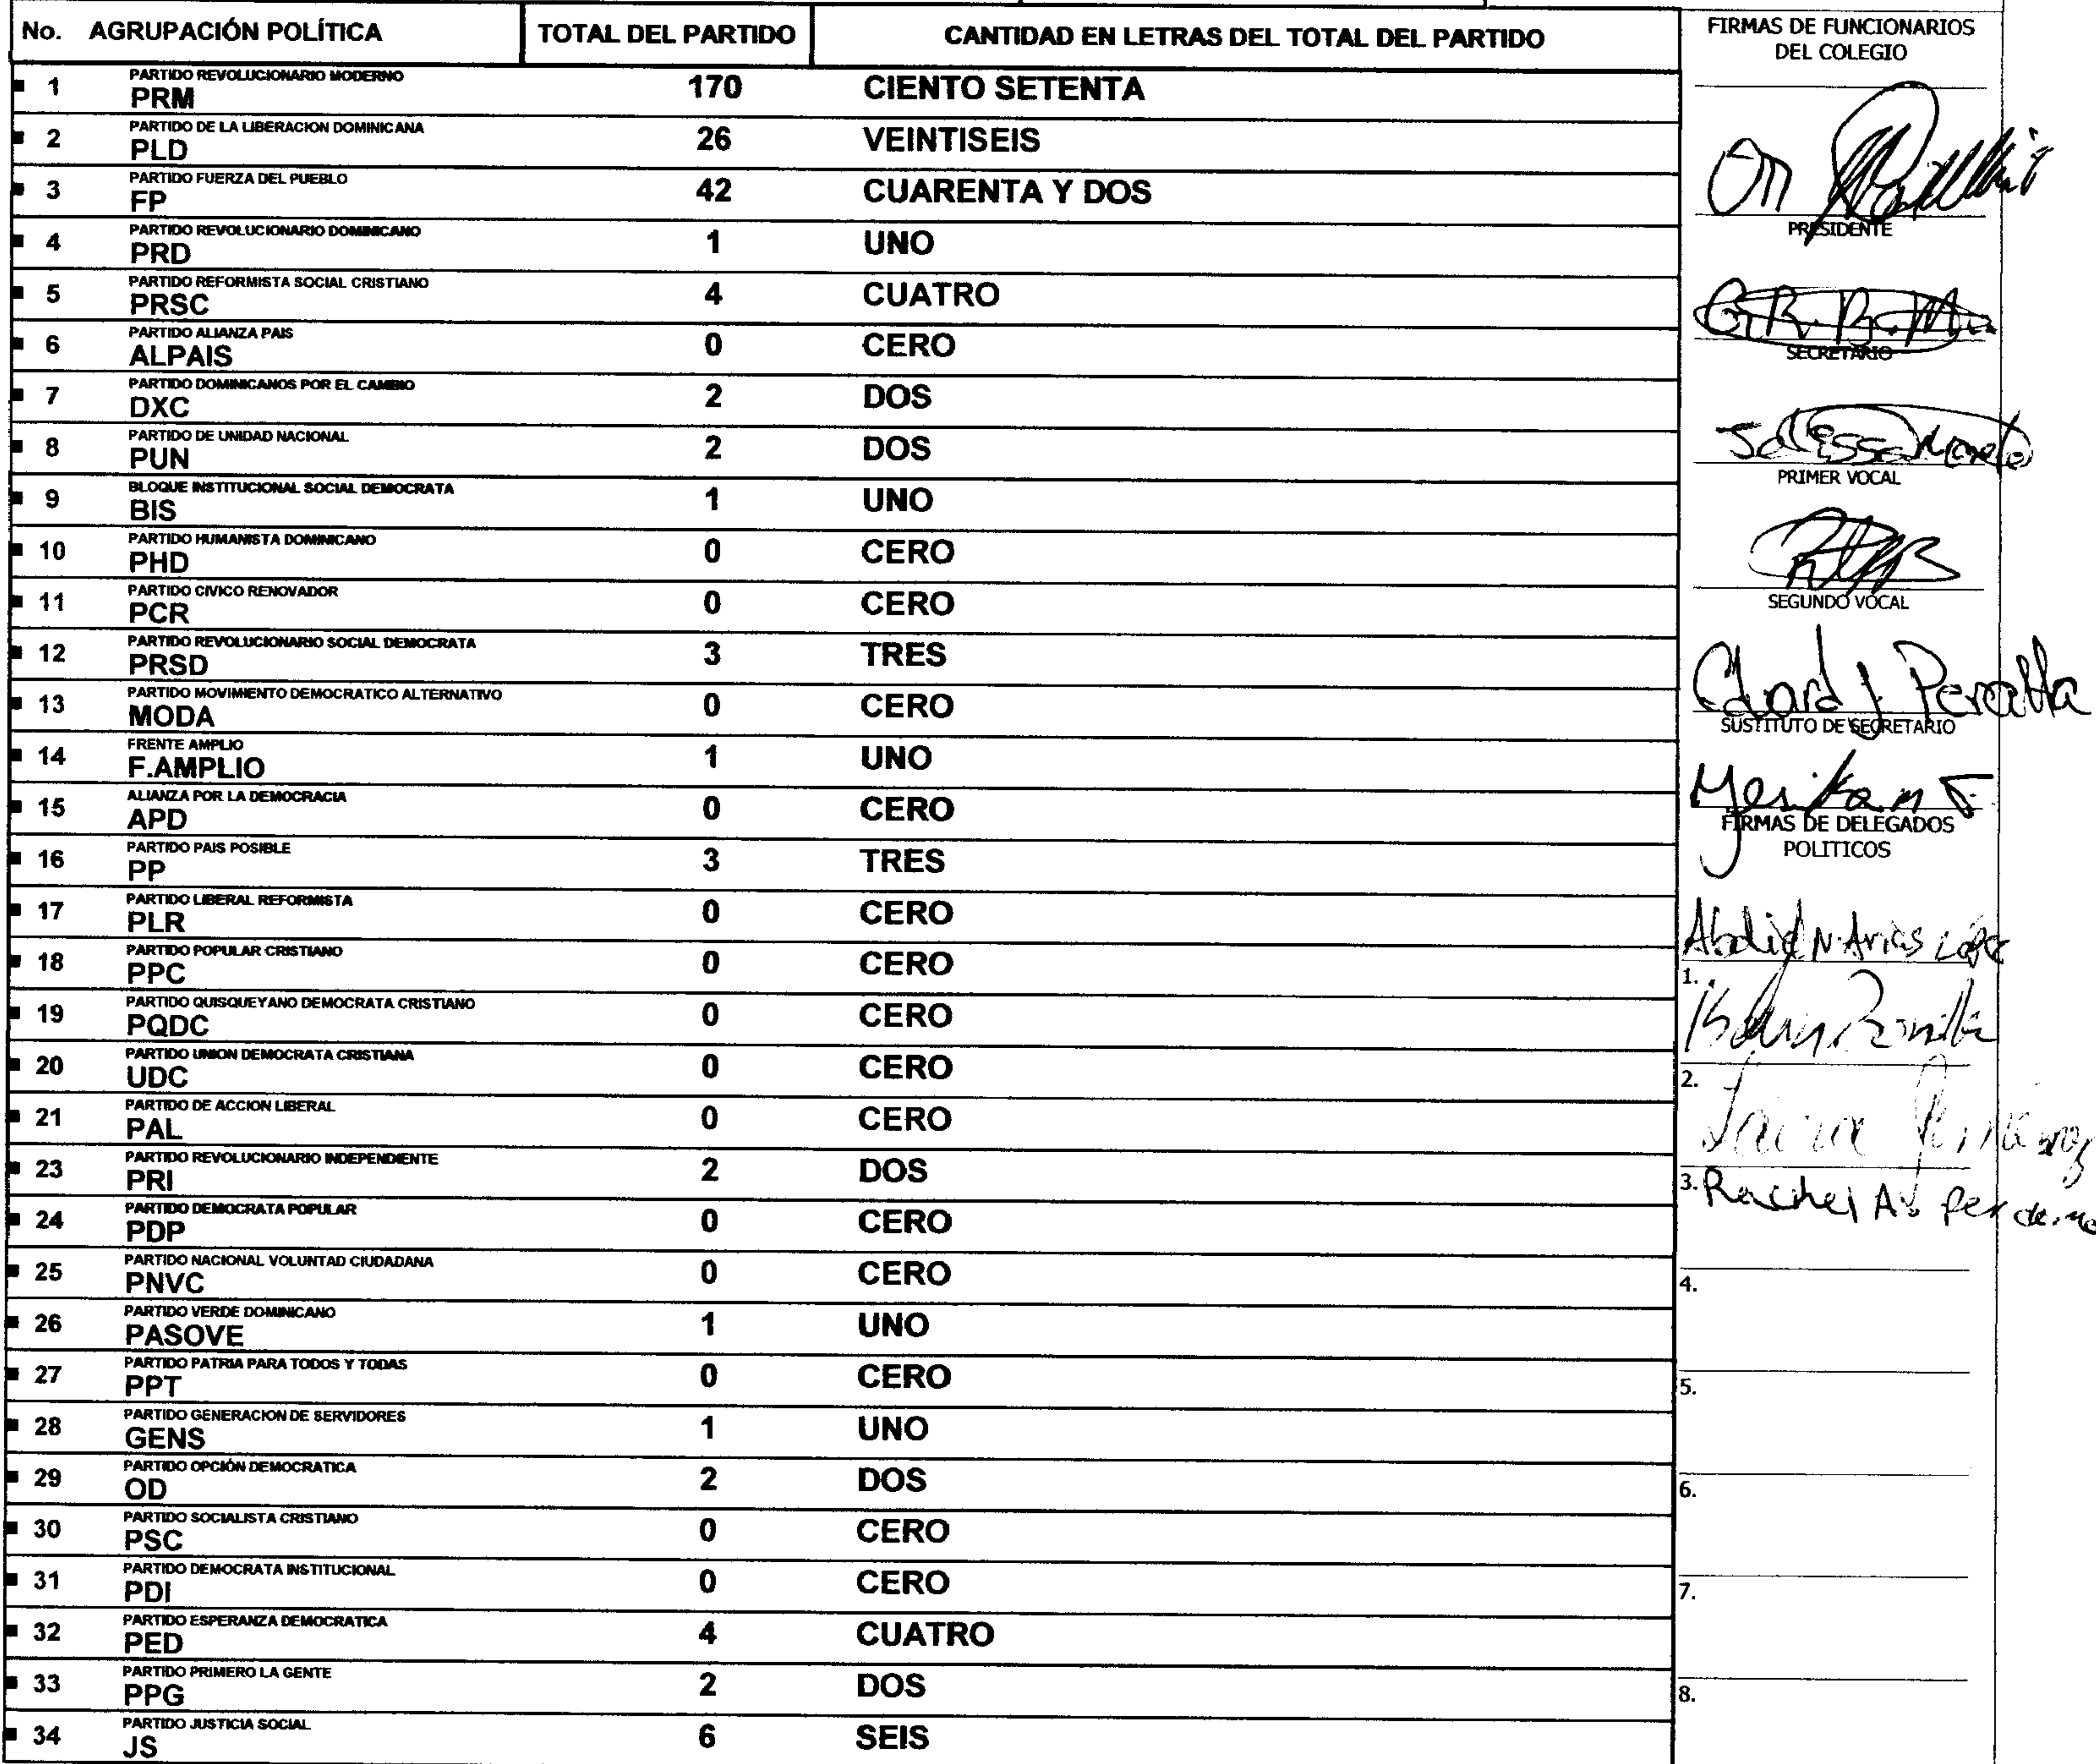 No. AGRUPACIÓN POLÍTICA TOTAL DEL PARTIDO CANTIDAD EN LETRAS DEL TOTAL DEL PARTIDO
1 PARTIDO REVOLUCIONARIO MODERNO
PRM 170 CIENTO SETENTA
2 PARTIDO DE LA LIBERACION DOMINICANA
PLD 26 VEINTISEIS
3 PARTIDO FUERZA DEL PUEBLO
FP 42 CUARENTA Y DOS
4 PARTIDO REVOLUCIONARIO DOMINICANO
PRD 1 UNO
5 PARTIDO REFORMISTA SOCIAL CRISTIANO
PRSC 4 CUATRO
6 PARTIDO ALIANZA PAIS
ALPAIS 0 CERO
7 PARTIDO DOMINICANOS POR EL CAMBIO
DXC 2 DOS
8 PARTIDO DE UNIDAD NACIONAL
PUN 2 DOS
9 BLOQUE INSTITUCIONAL SOCIAL DEMOCRATA
BIS 1 UNO
10 PARTIDO HUMANISTA DOMINICANO
PHD 0 CERO
11 PARTIDO CIVICO RENOVADOR
PCR 0 CERO
12 PARTIDO REVOLUCIONARIO SOCIAL DEMOCRATA
PRSD 3 TRES
13 PARTIDO MOVIMIENTO DEMOCRATICO ALTERNATIVO
MODA 0 CERO
14 FRENTE AMPLIO
F.AMPLIO 1 UNO
15 ALIANZA POR LA DEMOCRACIA
APD 0 CERO
16 PARTIDO PAIS POSIBLE
PP 3 TRES
17 PARTIDO LIBERAL REFORMISTA
PLR 0 CERO
18 PARTIDO POPULAR CRISTIANO
PPC 0 CERO
19 PARTIDO QUISQUEYANO DEMOCRATA CRISTIANO
PQDC 0 CERO
20 PARTIDO UNION DEMOCRATA CRISTIANA
UDC 0 CERO
21 PARTIDO DE ACCION LIBERAL
PAL 0 CERO
23 PARTIDO REVOLUCIONARIO INDEPENDIENTE
PRI 2 DOS
24 PARTIDO DEMOCRATA POPULAR
PDP 0 CERO
25 PARTIDO NACIONAL VOLUNTAD CIUDADANA
PNVC 0 CERO
26 PARTIDO VERDE DOMINICANO
PASOVE 1 UNO
27 PARTIDO PATRIA PARA TODOS Y TODAS
PPT 0 CERO
28 PARTIDO GENERACION DE SERVIDORES
GENS 1 UNO
29 PARTIDO OPCIÓN DEMOCRATICA
OD 2 DOS
30 PARTIDO SOCIALISTA CRISTIANO
PSC 0 CERO
31 PARTIDO DEMOCRATA INSTITUCIONAL
PDI 0 CERO
32 PARTIDO ESPERANZA DEMOCRATICA
PED 4 CUATRO
33 PARTIDO PRIMERO LA GENTE
PPG 2 DOS
34 PARTIDO JUSTICIA SOCIAL
JS 6 SEIS
FIRMAS DE FUNCIONARIOS
DEL COLEGIO
PRESIDENTE
SECRETARIO
PRIMER VOCAL
SEGUNDO VOCAL
Peralta
SUSTITUTO DE SECRETARIO
FIRMAS DE DELEGADOS
POLITICOS
N. Arias
1.
2.
3. Rachel
4.
5.
6.
7.
8.